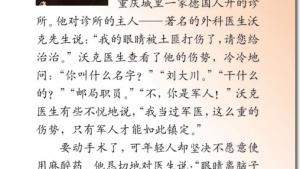 重庆城里一家德国人开的诊
所。他对诊所的主人——著名的外科医生沃
克先生说：“我的眼睛被土匪打伤了，请您给
治治。”沃克医生查看了他的伤势，冷冷地
问：“你叫什么名字？”“刘大川。”“干什么
的？”“邮局职员。”“不，你是军人！”沃克
医生有些不悦地说，“我当过军医，这么重的
伤势，只有军人才能如此镇定。”
要动手术了，可年轻人却坚决不愿意使
用麻醉药。他恳切地对医生说：“眼睛离脑子